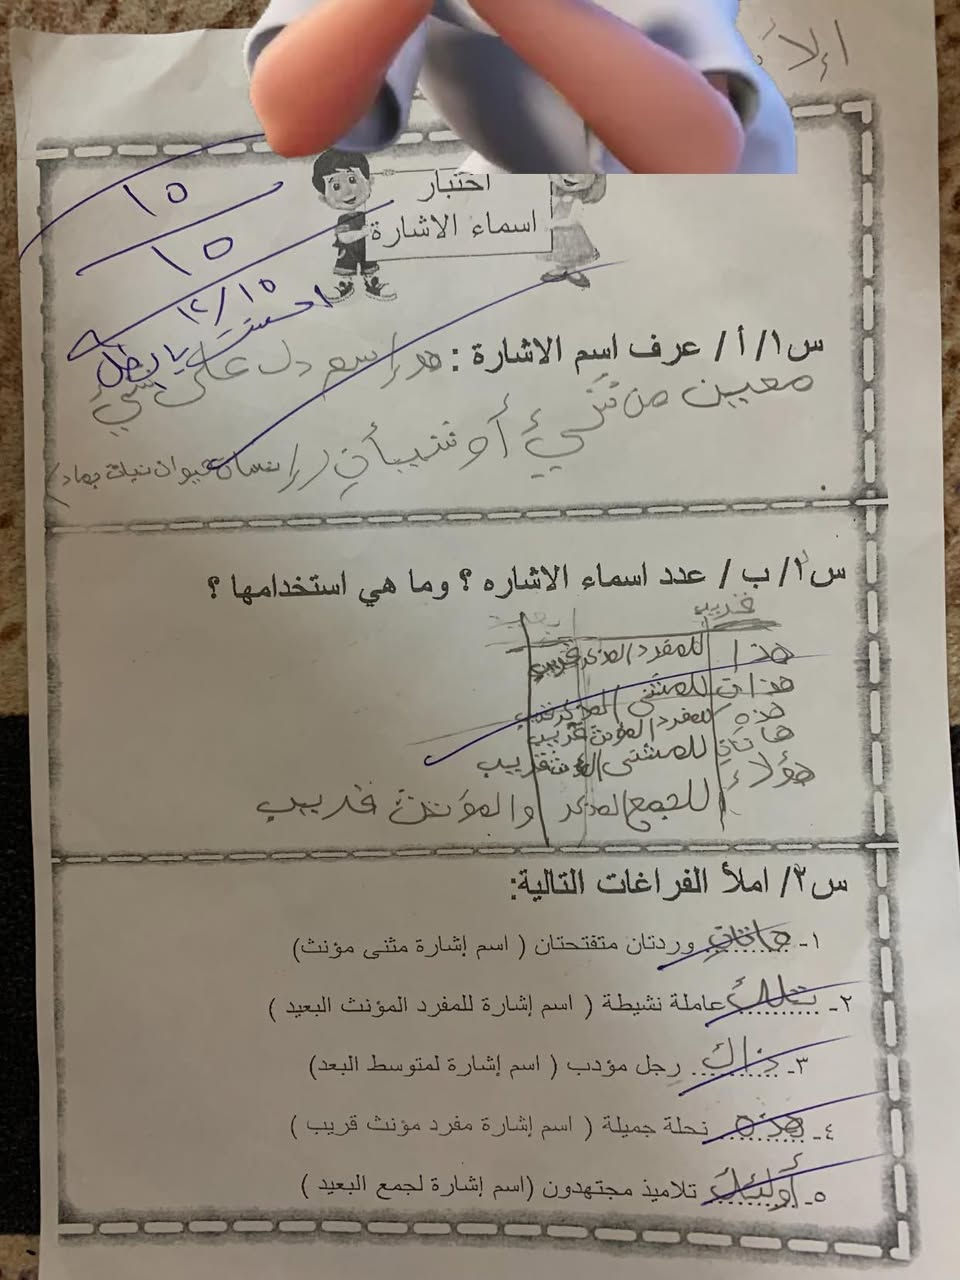 إلا
اختبار
اسماء الاشارة
١٥
١٥
١٢/١٥
احسنت يا بطل
س١/ أ/ عرف اسم الاشارة : هو إسم دل على شيء
معين من شيء أو شيبأن إنسان حيوان نبات جماد
س١/ ب / عدد اسماء الاشاره ؟ وما هي استخدامها ؟
قريب بعيد
هذا للمفرد المذكر قريب
هذان للمثنى المذكر قريب
هذه للمفرد المؤنث قريب
هاتانِ للمثنى المؤنث قريب
هؤلاء للجمع المذكر والمؤنث قريب
س٢/ املأ الفراغات التالية:
١- هاتانِ وردتان متفتحتان ( اسم إشارة مثنى مؤنث)
٢- تلكَ عاملة نشيطة ( اسم إشارة للمفرد المؤنث البعيد )
٣- ذاك رجل مؤدب ( اسم إشارة لمتوسط البعد)
٤- هذه نحلة جميلة ( اسم إشارة مفرد مؤنث قريب )
٥- أولئك تلاميذ مجتهدون (اسم إشارة لجمع البعيد )